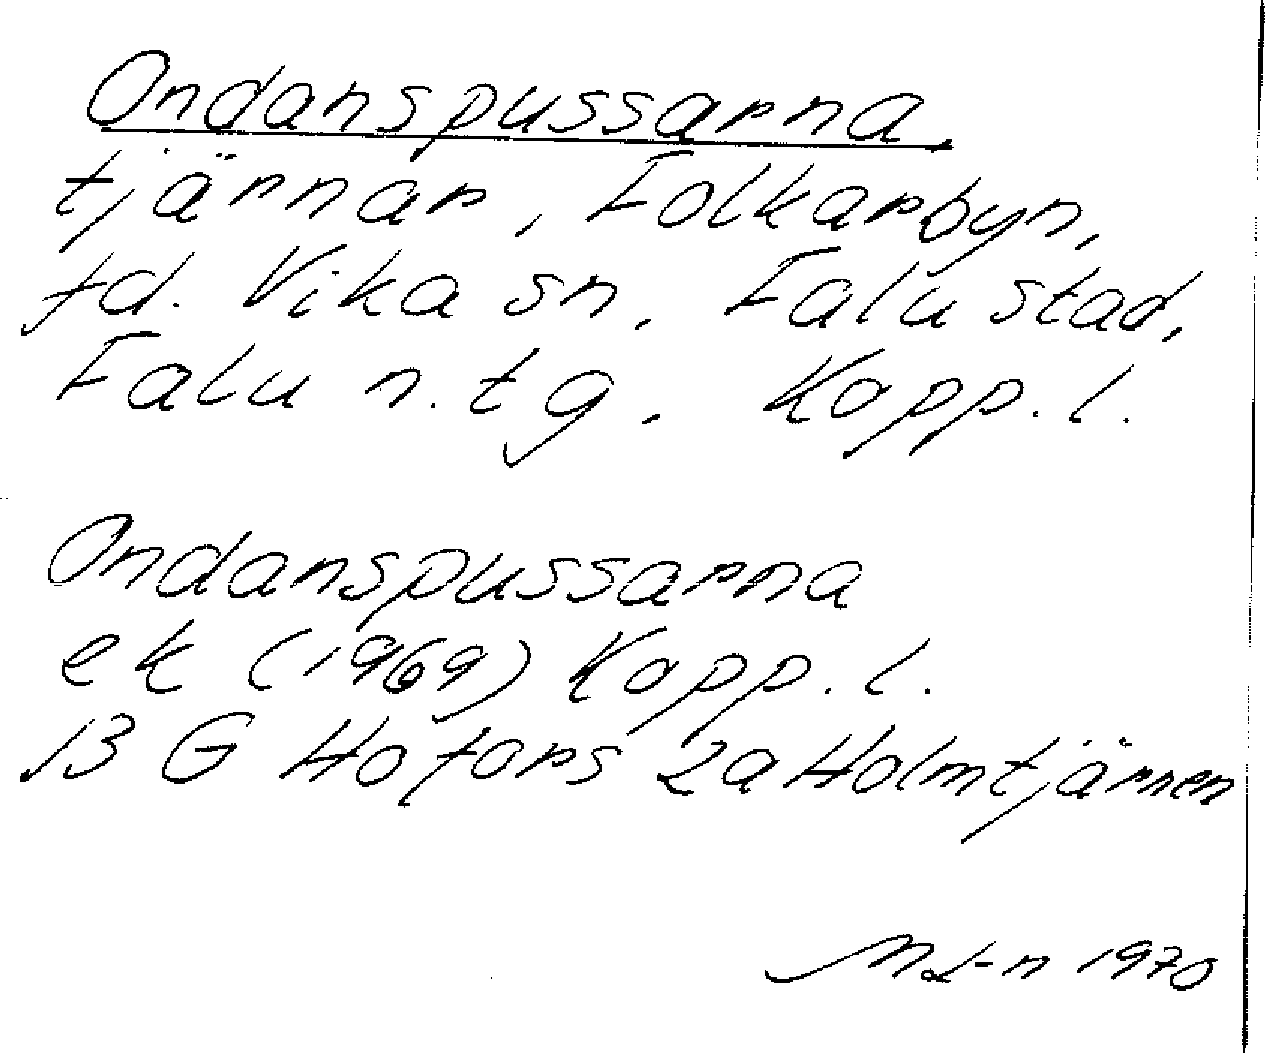 Ondanspussarna,
tjärnar, Folkarbyn,
fd. Vika sn, Falu stad,
Falu n. tg. Kopp. l.
Ondanspussarna
ek (1969) Kopp. l.
13 G Hofors 2a Holmtjärnen
1970